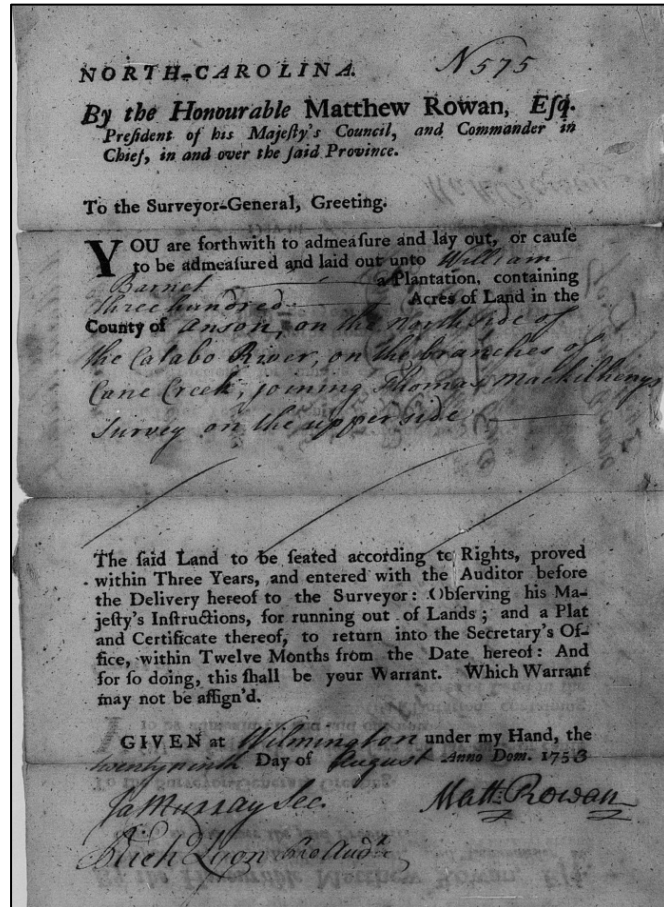 NORTH-CAROLINA. N 575
By the Honourable Matthew Rowan, Eſq.
Preſident of his Majeſty's Council, and Commander in
Chief, in and over the ſaid Province.
To the Surveyor-General, Greeting.
YOU are forthwith to admeaſure and lay out, or cauſe
to be admeaſured and laid out unto William
Barnet a Plantation, containing
three hundred Acres of Land in the
County of Anson, on the North side of
the Catabo River, on the branches of
Cane Creek, joining Thomas Mackilhenys
Survey on the upper side
The ſaid Land to be ſeated according to Rights, proved
within Three Years, and entered with the Auditor before
the Delivery hereof to the Surveyor: Obſerving his Ma-
jeſty's Inſtructions, for running out of Lands; and a Plat
and Certificate thereof, to return into the Secretary's Of-
fice, within Twelve Months from the Date hereof: And
for ſo doing, this ſhall be your Warrant. Which Warrant
may not be aſſign'd.
GIVEN at Wilmington under my Hand, the
twenty ninth Day of August Anno Dom. 1753
Ja Murray Sec. Matt: Rowan
Rich Lyon